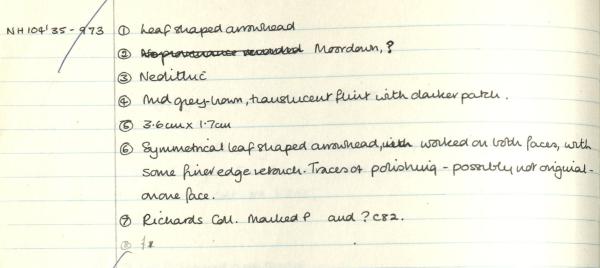 NH 104'35 - 973 ① Leaf shaped arrowhead
② No provenance recorded Moordown, ?
③ Neolithic
④ Mid grey-brown, translucent flint with darker patch.
⑤ 3.6cm x 1.7cm
⑥ Symmetrical leaf shaped arrowhead, with worked on both faces, with
some finer edge retouch. Traces of polishing - possibly not original -
on one face.
⑦ Richards Coll. Marked P and ? C82.
⑧